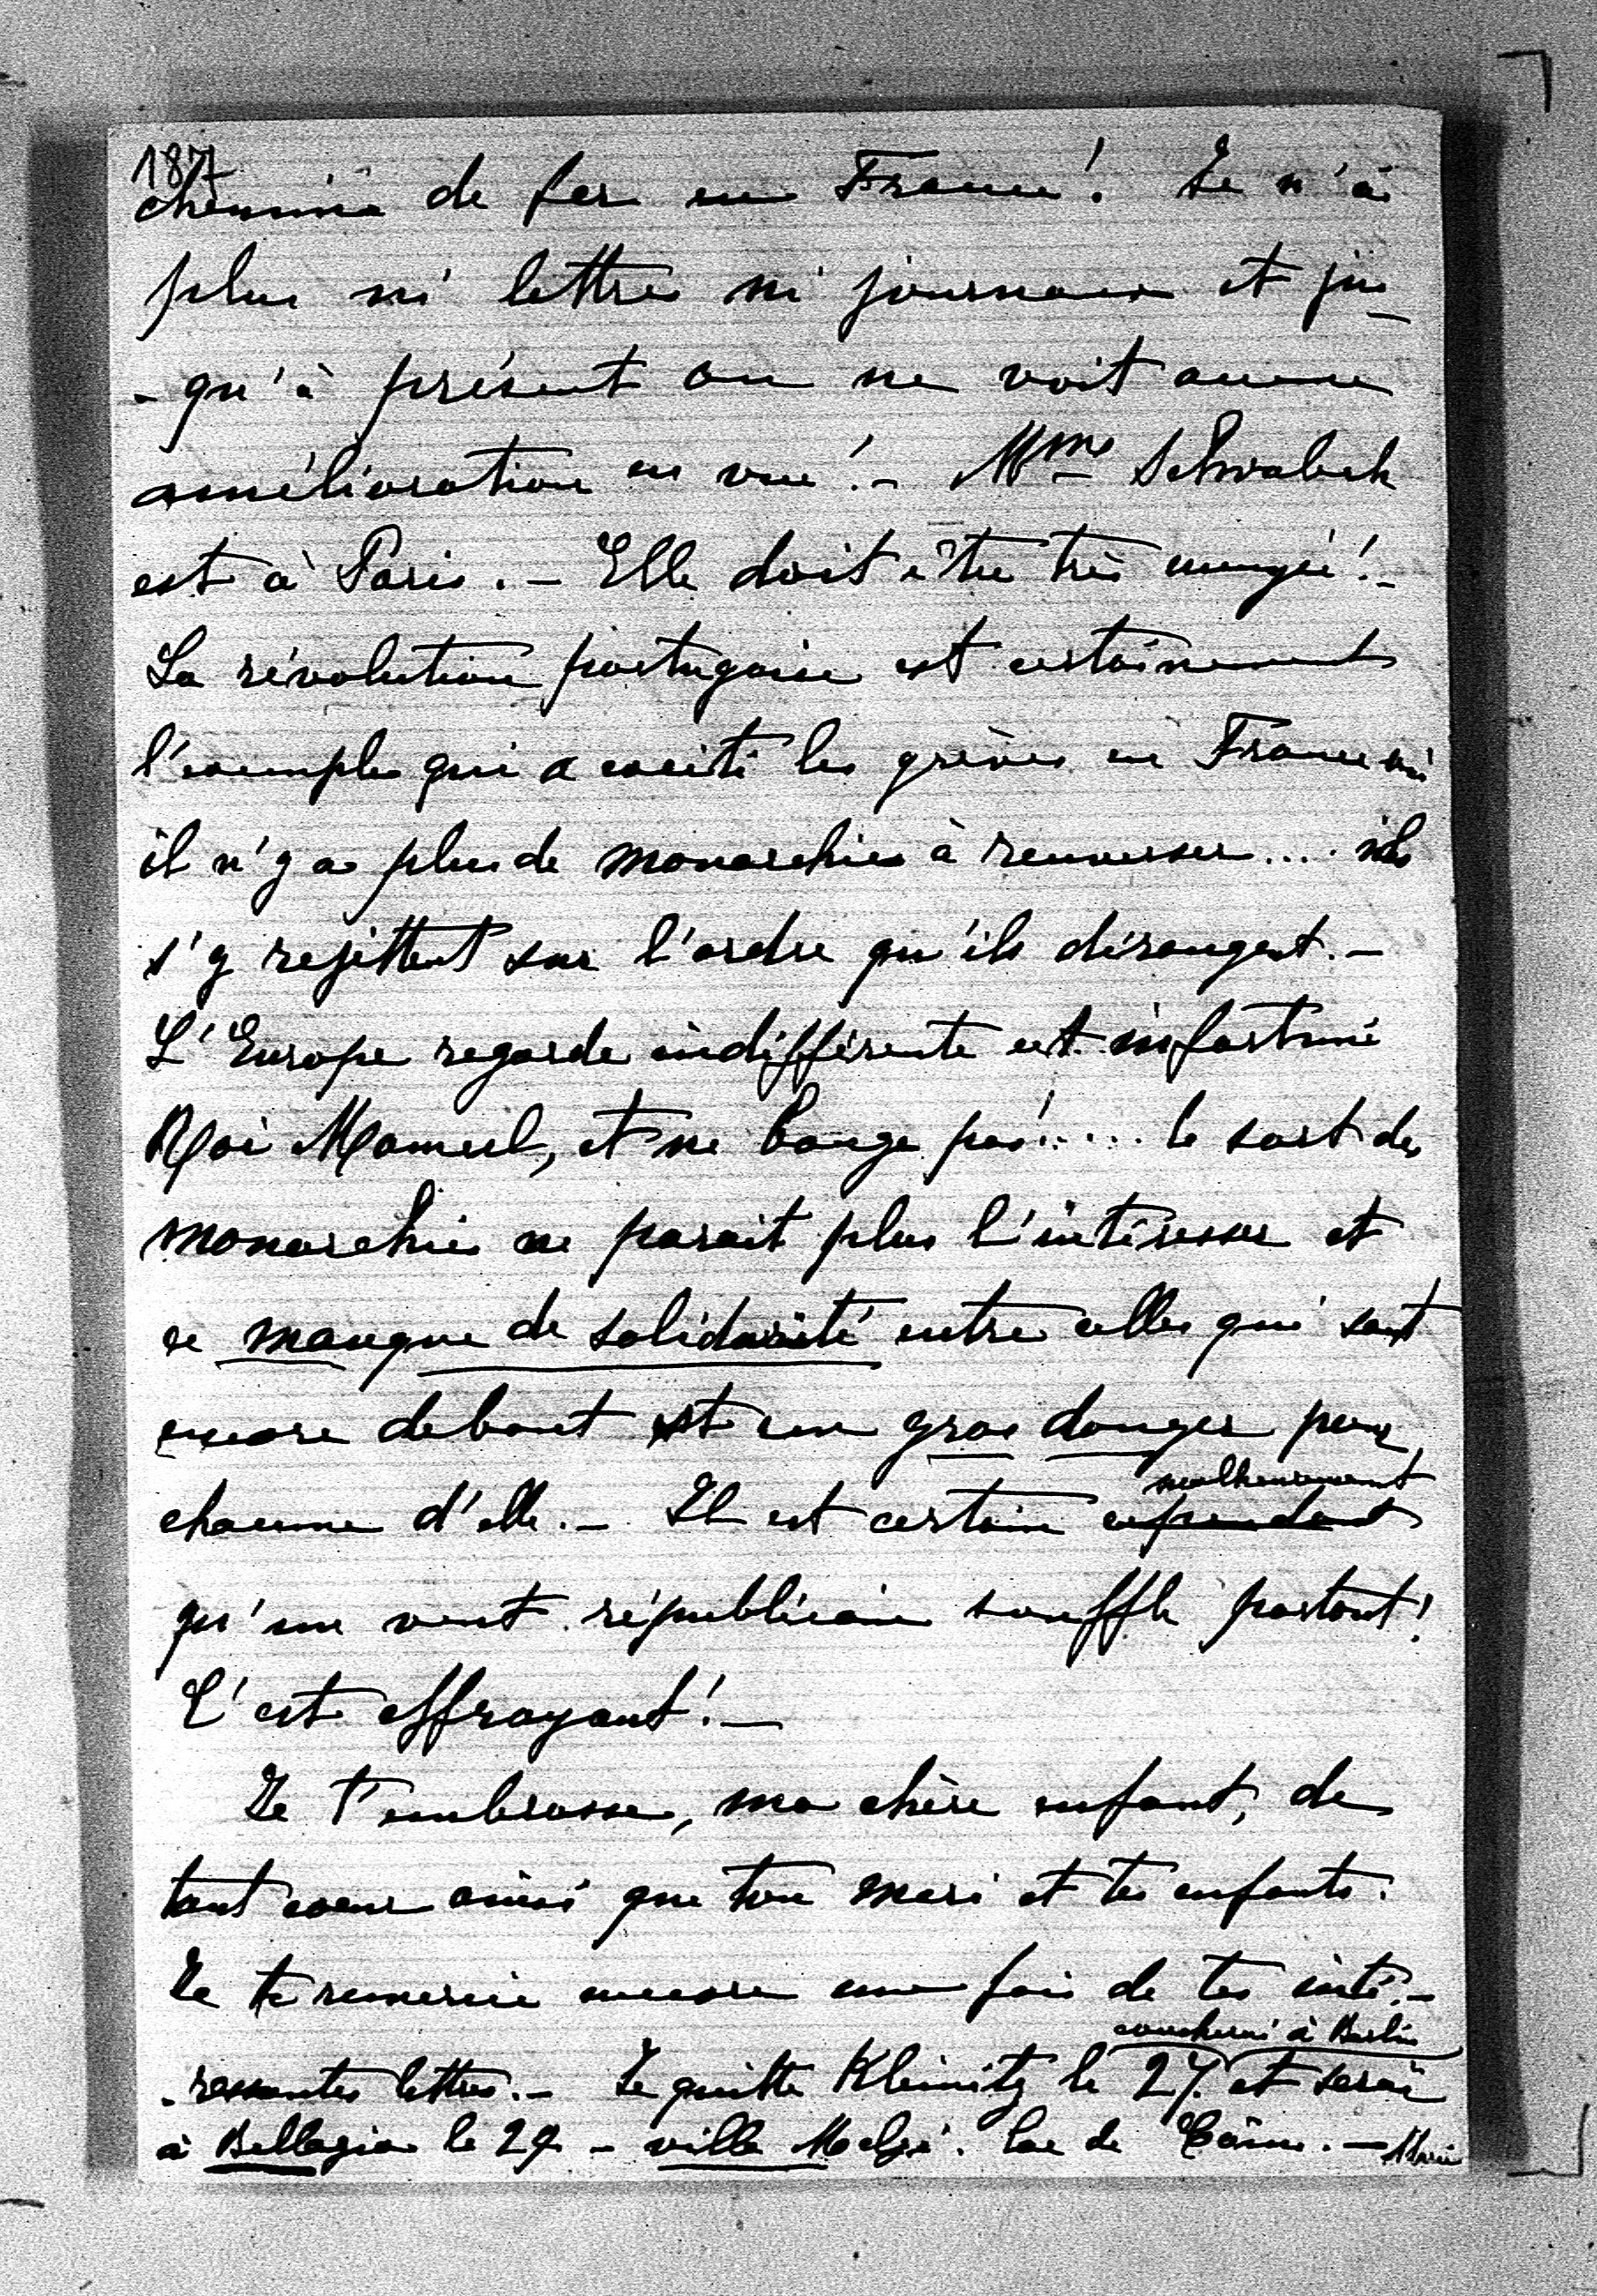 1871
chemins de fer en France! Je n'ai
plus ni lettres ni journaux et jus-
-qu'à présent on ne voit aucune
amélioration en vue!- Mme Schwabach
est à Paris.- Elle doit être très ennuyée!-
La révolution portugaise est certainement
l'exemple qui a excité les grèves en France où
il n'y a plus de monarchies à renverser.... ils
s'y rejettent sur l'ordre qu'ils dérangent.-
L'Europe regarde indifférente cet infortuné
Roi Manuel, et ne bouge pas!.... le sort des
monarchies ne parait plus l'intéresser et
ce manque de solidarité entre celles qui sont
encore debout est un gros danger pour
malheureusement
chacune d'elle.- Il est certain cependant
qu'un vent républicain souffle partout!
C'est effrayant!-
Je t'embrasse, ma chère enfant, de
tout coeur ainsi que ton mari et tes enfants.
Je te remercie encore une fois de tes inté-
coucherai à Berlin
-ressantes lettres.- Je quitte Kleinitz le 27 et serai
à Bellagio le 29 - villa Melzi. Lac de Côme.- Marie